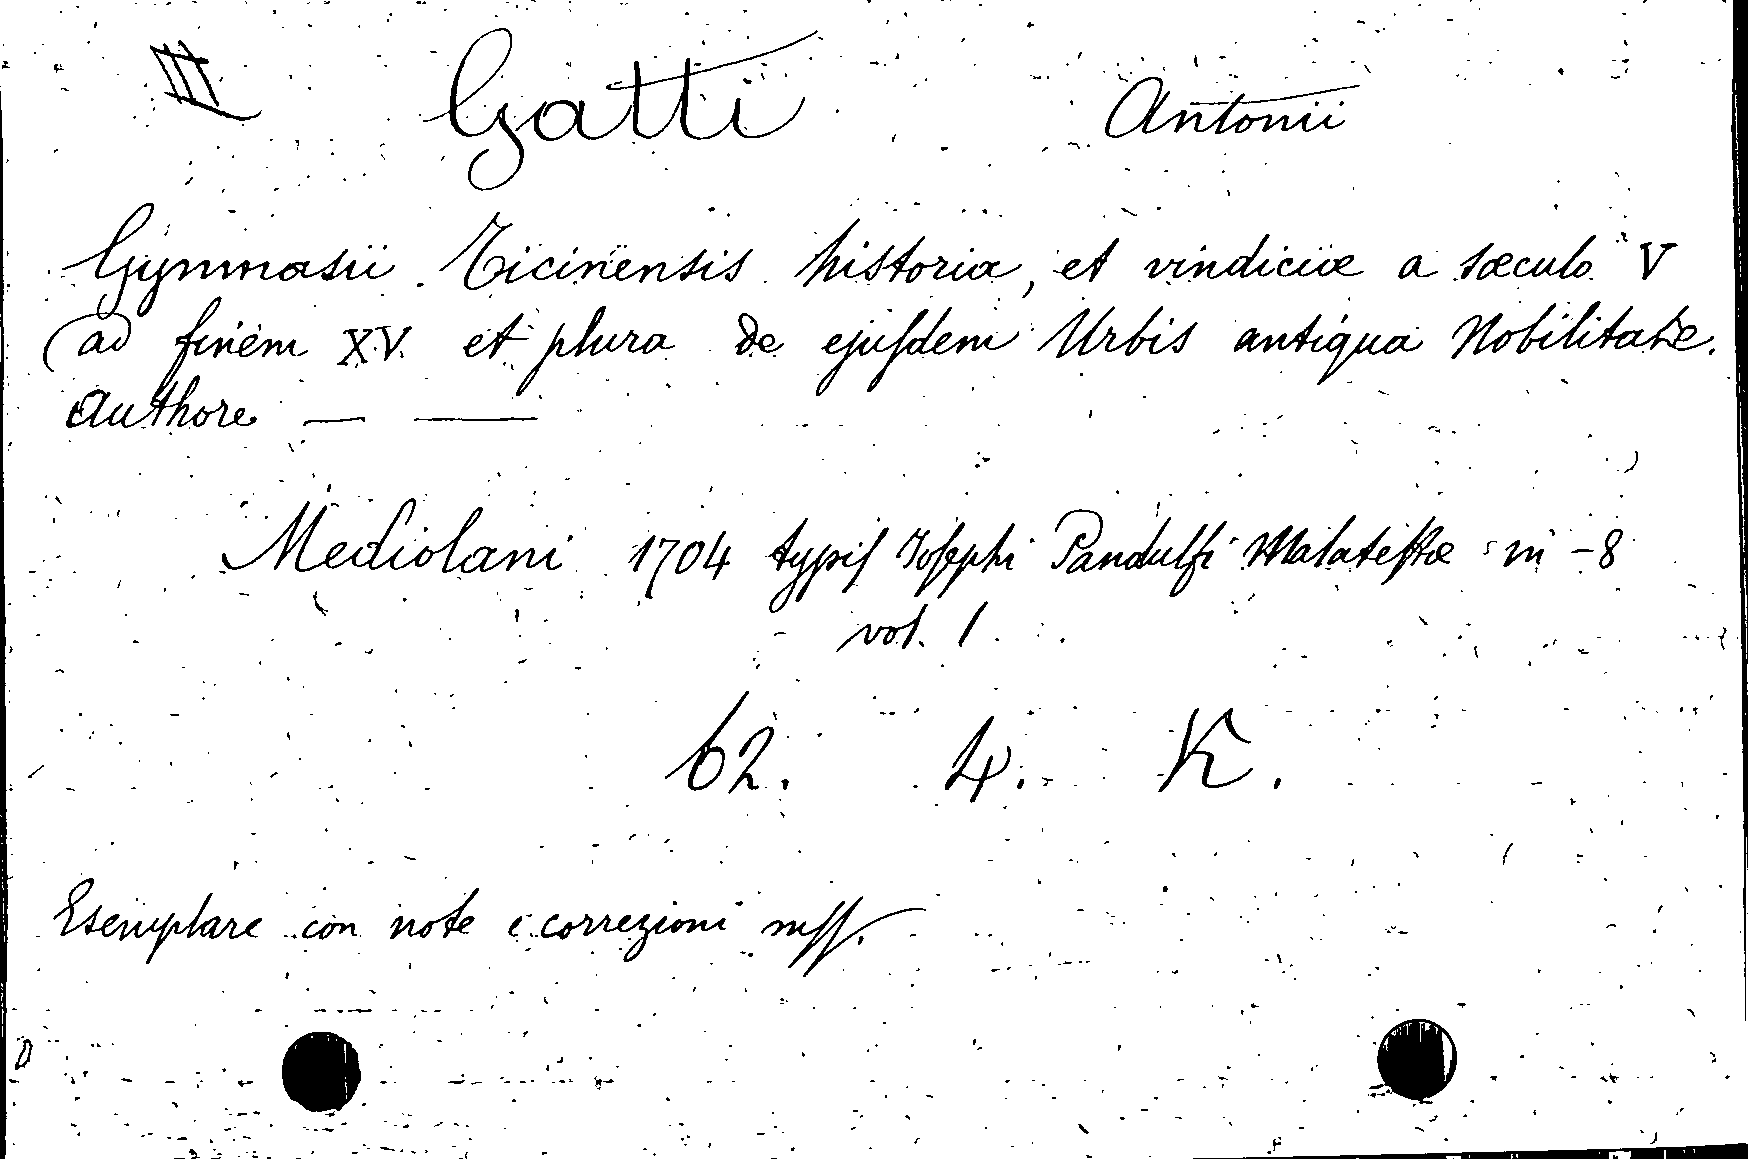 III Gatti Antonii
Gymnasii Ticinensis historia, et vindiciæ a sæculo V
ad finem XV. et plura de ejusdem Urbis antiqua Nobilitate.
Authore — —
Mediolani 1704 typis Josephi Pandulfi Malatestæ in-8
vol. 1.
62. 4. K.
Esemplare con note e correzioni mss.